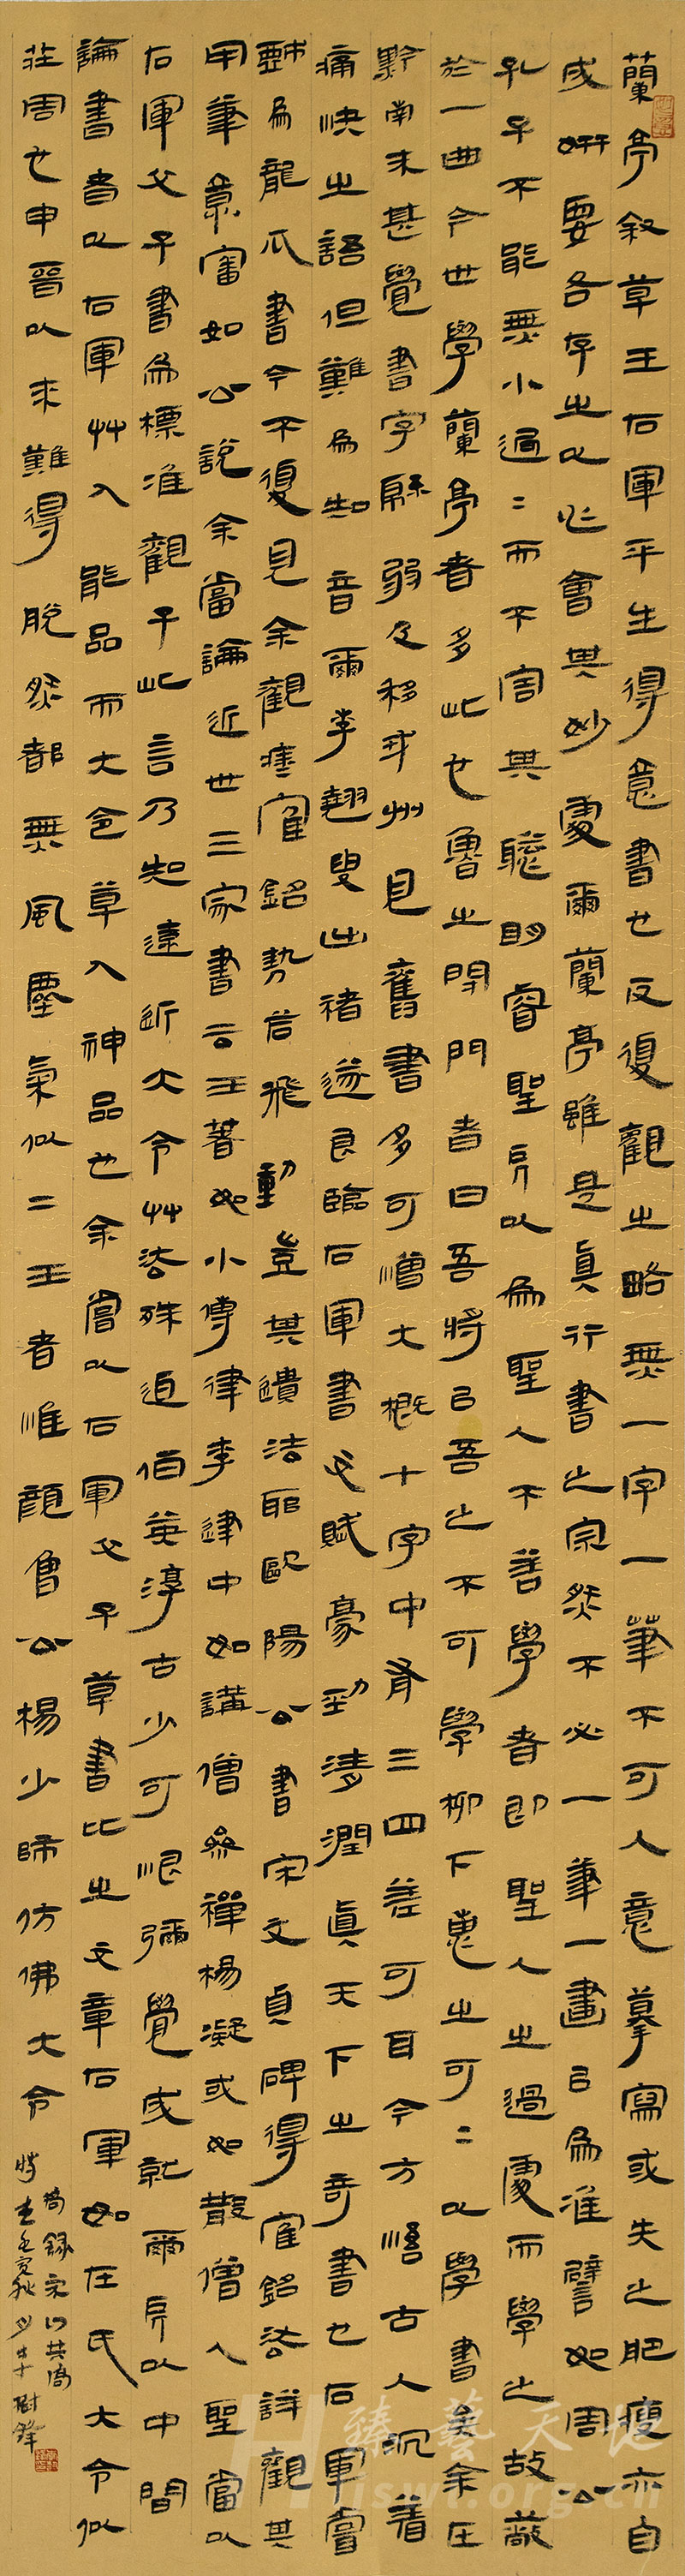 蘭亭叙草王右軍平生得意書也反復觀之略無一字一筆不可人意摹寫或失之肥瘦亦自
成妍要各存之以心會其妙處爾蘭亭雖是真行書之宗然不必一筆一畫以為准譬如周公
孔子不能無小過〻而不害其聰明睿聖所以為聖人不善學者即聖人之過處而學之故蔽
於一曲今世學蘭亭者多此也魯之閉門者曰吾將以吾之不可學柳下惠之可〻以學書矣余在
黔南未甚覺書字緜弱及移戎州見舊書多可憎大概十字中有三四差可耳今方悟古人沉着
痛快之語但難為知音爾李翹叟出褚遂良臨右軍書文賦豪勁清潤真天下之奇書也右軍嘗
戲為龍爪書今不復見余觀瘞寉銘勢若飛動豈其遺法耶歐陽公書宋文貞碑得寉銘法詳觀其
用筆意審如公說余嘗論近世三家書云王著如小傳律李建中如講僧參禪楊凝或如散僧入聖當以
右軍父子書為標准觀予此言乃知遠近大令艸法殊迫伯英淳古少可恨彌覺成就爾所以中間
論書者以右軍艸入能品而大令草入神品也余嘗以右軍父子草書比之文章右軍如左氏大令似
莊周也由晉以來難得脫然都無風塵氣似二王者惟顏魯公楊少師仿佛大令
時在壬寅秋月
臻藝天地
jswl.org.cn